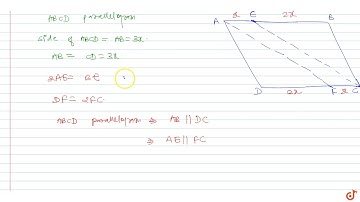 ABCD parallelogram
side of ABCD = AB = 3x.
AB = CD = 3x
2AE = BE
DF = 2FC.
ABCD parallelogram ⇒ AB || DC
⇒ AE || FC
A x E 2x B
D 2x F x C